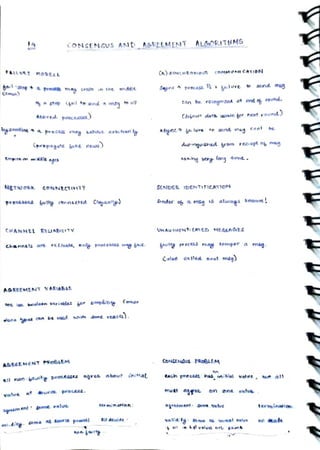 CONSENSUS AND AGREEMENT ALGORITHMS
FAILURE MODELS
(A)SYNCHRONOUS COMMUNICATION
fail-stop → a process may crash in the middle
(crash)
of a step (fail to send a msg to all
desired processes)
byzantine → a process may behave arbitrarily
(propagate fake news)
Empire in middle ages
synch → process is a failure to send msg
can be recognized at end of round.
(default data for next round)
asynch → failure to send may not be
distinguished from receipt of msg
taking very long time.
NETWORK CONNECTIVITY
processes fully connected (logically)
SENDER IDENTIFICATION
sender of a msg is always known!
CHANNEL RELIABILITY
channels are reliable, only processes may fail
UNAUTHENTICATED MESSAGES
faulty process may tamper a msg.
(also called oral msg)
AGREEMENT VARIABLE
We use boolean variables for simplicity (more
types can be used with same results).
AGREEMENT PROBLEM
all non-faulty processes agree about initial
value of source process.
agreement: same value
termination:
validity: same as source process
all decide
non faulty
CONSENSUS PROBLEM
each process has initial value, but all
must agree on one value.
agreement: same value
termination:
validity: same as initial value
all value are same